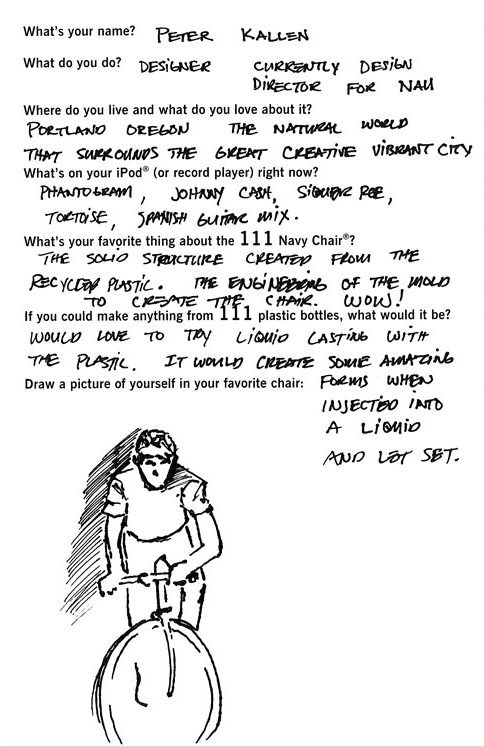 What's your name? PETER KALLEN
What do you do? DESIGNER CURRENTLY DESIGN
DIRECTOR FOR NAU
Where do you live and what do you love about it?
PORTLAND OREGON THE NATURAL WORLD
THAT SURROUNDS THE GREAT CREATIVE VIBRANT CITY
What's on your iPod® (or record player) right now?
PHANTOGRAM, JOHNNY CASH, SIGUER ROE,
TORTOISE, SPANISH GUITAR MIX.
What's your favorite thing about the 111 Navy Chair®?
THE SOLID STRUCTURE CREATED FROM THE
RECYCLED PLASTIC. THE ENGINEERING OF THE MOLD
TO CREATE THE CHAIR. WOW!
If you could make anything from 111 plastic bottles, what would it be?
WOULD LOVE TO TRY LIQUID CASTING WITH
THE PLASTIC. IT WOULD CREATE SOME AMAZING
Draw a picture of yourself in your favorite chair: FORMS WHEN
INJECTED INTO
A LIQUID
AND LET SET.